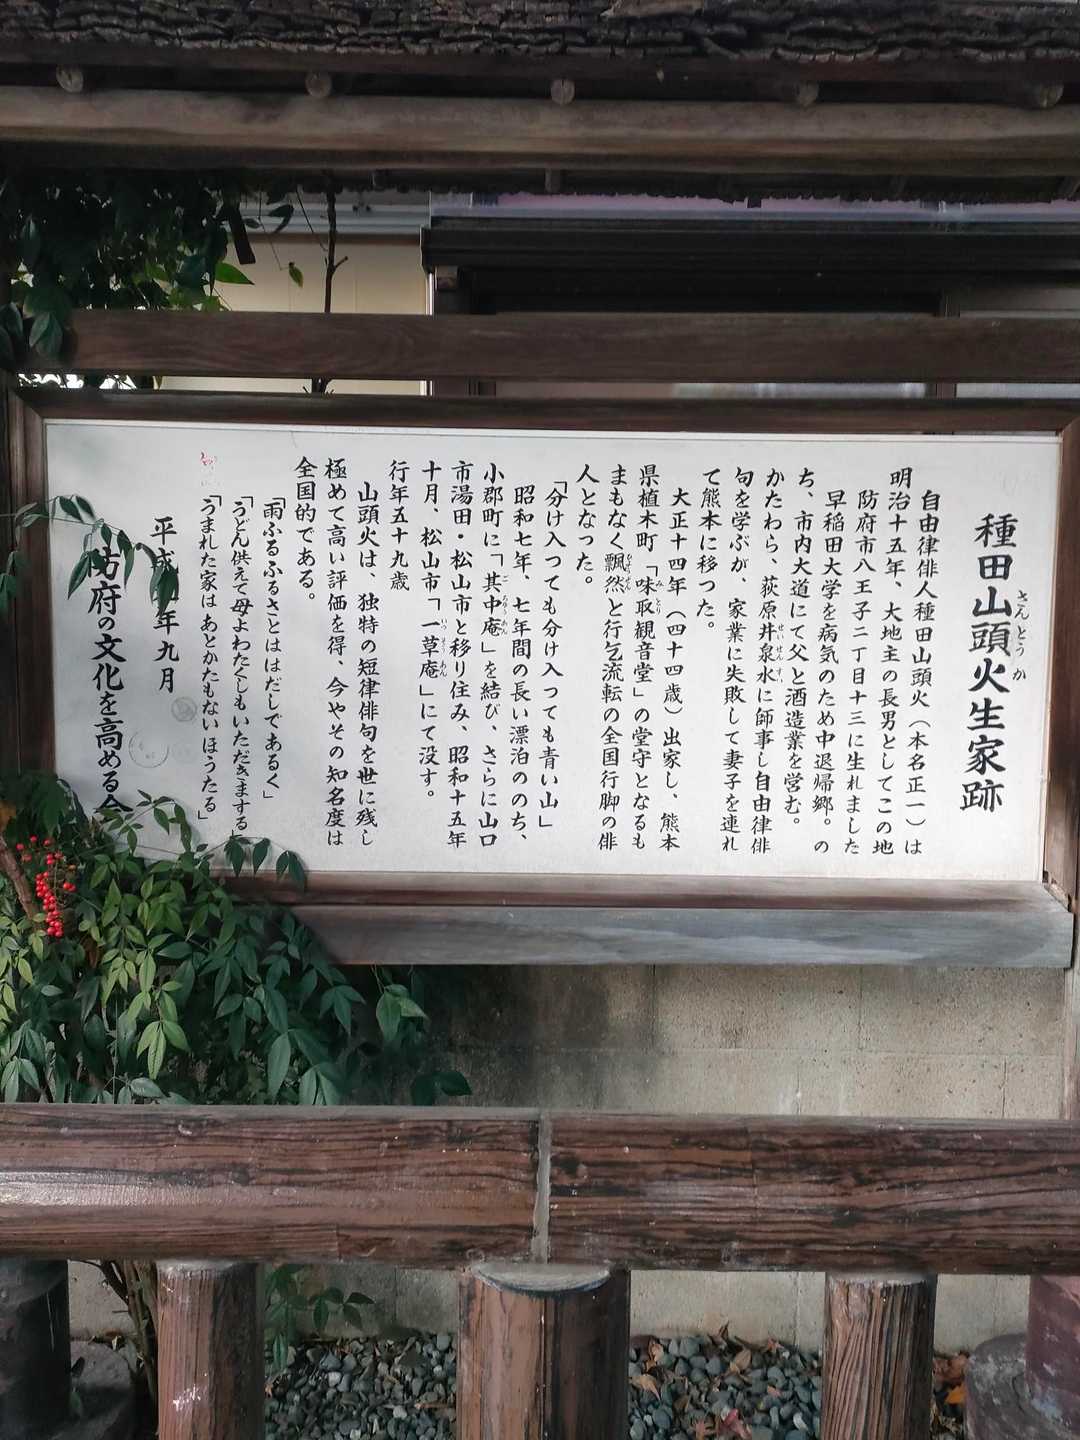 種田山頭火生家跡
さんとうか
自由律俳人種田山頭火（本名正一）は
明治十五年、大地主の長男としてこの地
防府市八王子二丁目十三に生れました
早稲田大学を病気のため中退帰郷。の
ち、市内大道にて父と酒造業を営む。
かたわら、荻原井泉水に師事し自由律俳
せいせんすい
句を学ぶが、家業に失敗して妻子を連れ
て熊本に移つた。
大正十四年（四十四歳）出家し、熊本
県植木町「味取観音堂」の堂守となるも
みとり
まもなく飄然と行乞流転の全国行脚の俳
ひょうぜん
人となった。
「分け入つても分け入つても青い山」
昭和七年、七年間の長い漂泊ののち、
小郡町に「其中庵」を結び、さらに山口
ごちゅうあん
市湯田・松山市と移り住み、昭和十五年
十月、松山市「一草庵」にて没す。
いっそうあん
行年五十九歳
山頭火は、独特の短律俳句を世に残し
極めて高い評価を得、今やその知名度は
全国的である。
「雨ふるふるさとははだしであるく」
「うどん供えて母よわたくしもいただきまする」
「うまれた家はあとかたもないほうたる」
句
平成 年九月
防府の文化を高める会